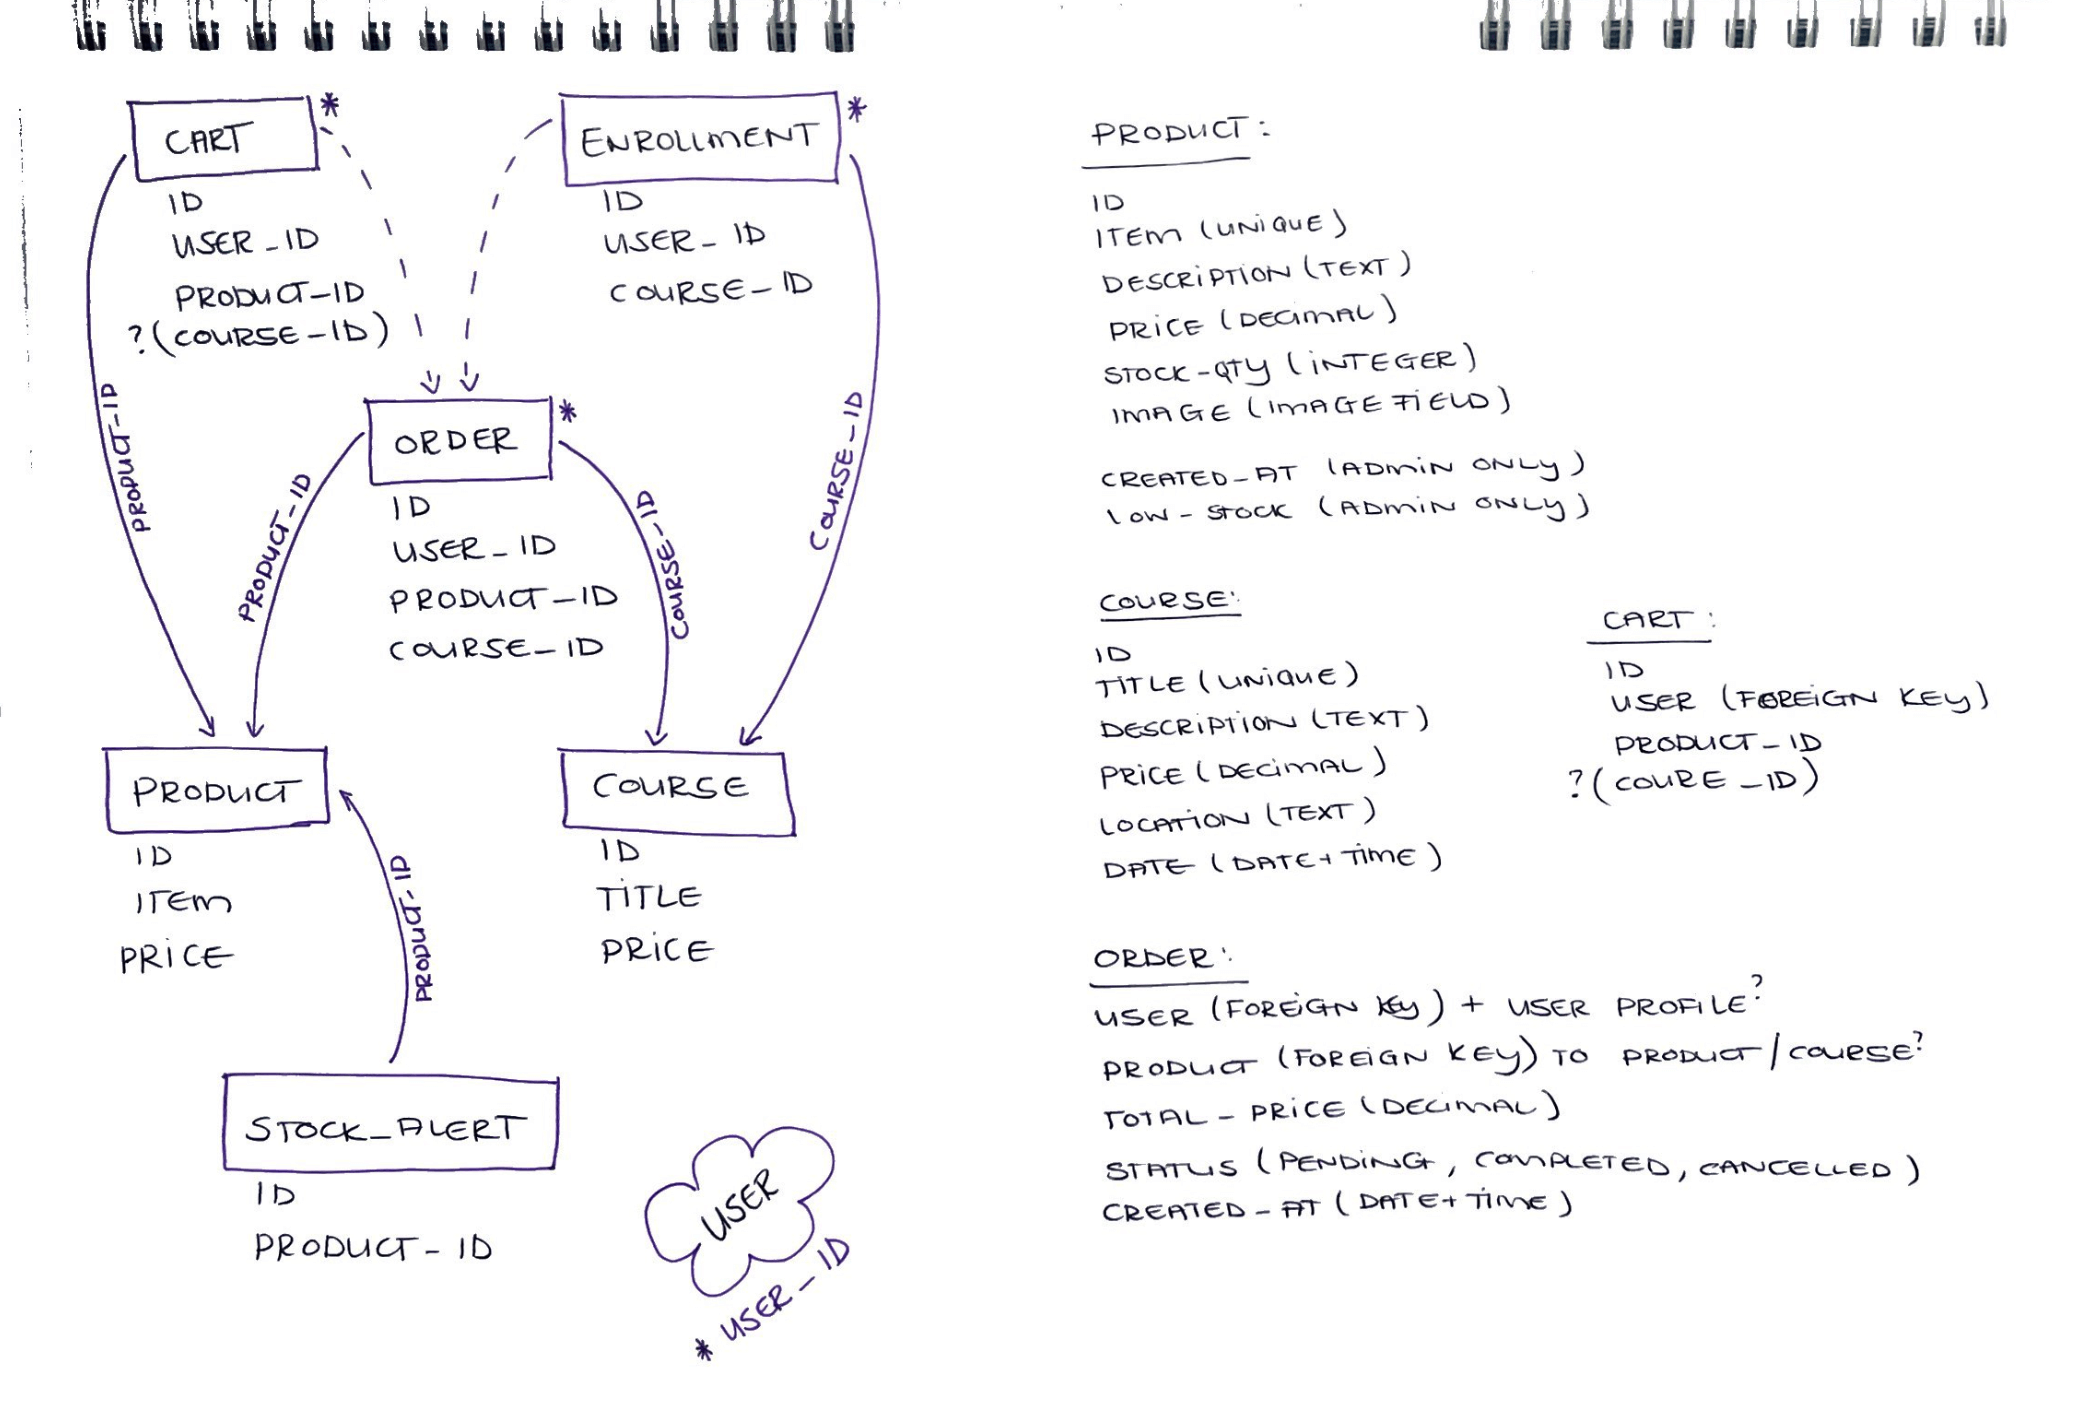 CART *
ID
USER_ID
PRODUCT-ID
?(COURSE-ID)
ENROLLMENT *
ID
USER_ID
COURSE-ID
PRODUCT-ID
PRODUCT-ID
ORDER *
ID
USER_ID
PRODUCT-ID
COURSE-ID
COURSE-ID
COURSE-ID
PRODUCT
ID
ITEM
PRICE
COURSE
ID
TITLE
PRICE
PRODUCT-ID
STOCK_ALERT
ID
PRODUCT-ID
USER
* USER_ID
PRODUCT:
ID
ITEM (UNIQUE)
DESCRIPTION (TEXT)
PRICE (DECIMAL)
STOCK-QTY (INTEGER)
IMAGE (IMAGE FIELD)
CREATED-AT (ADMIN ONLY)
LOW-STOCK (ADMIN ONLY)
COURSE:
ID
TITLE (UNIQUE)
DESCRIPTION (TEXT)
PRICE (DECIMAL)
LOCATION (TEXT)
DATE (DATE+TIME)
CART:
ID
USER (FOREIGN KEY)
PRODUCT-ID
?(COURE_ID)
ORDER:
USER (FOREIGN KEY) + USER PROFILE?
PRODUCT (FOREIGN KEY) TO PRODUCT/COURSE?
TOTAL-PRICE (DECIMAL)
STATUS (PENDING, COMPLETED, CANCELLED)
CREATED-AT (DATE+TIME)